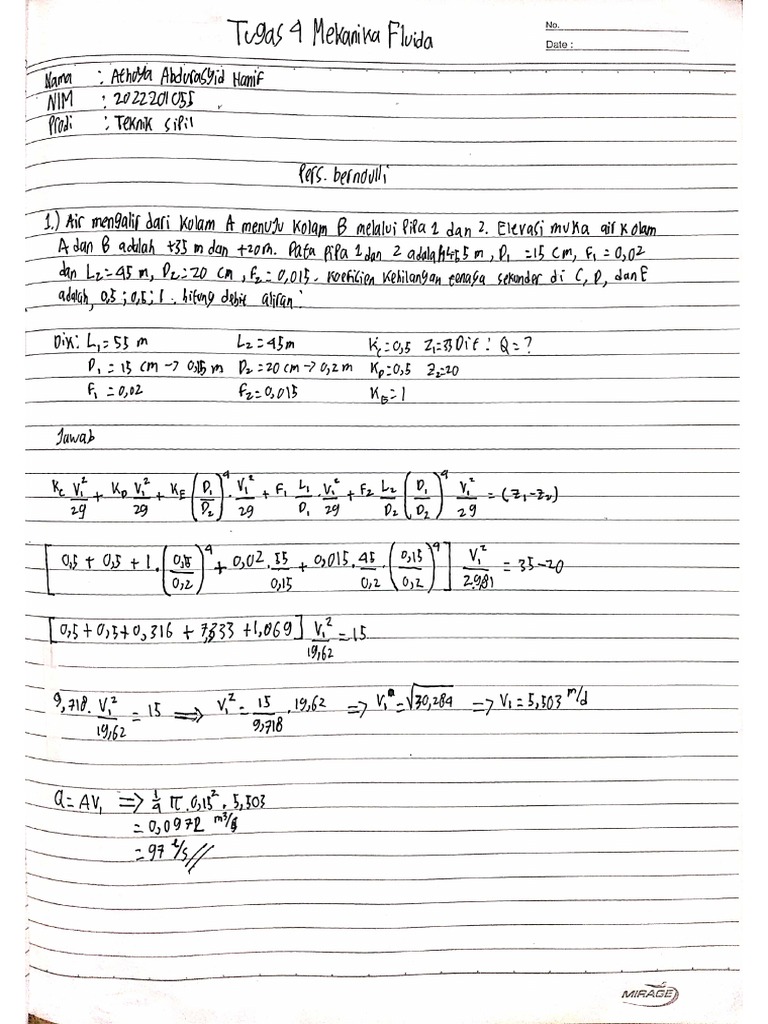 Tugas 4 Mekanika Fluida
No.
Date :
Nama : Athoya Abdurasyid Hanif
NIM : 2022201055
Prodi : Teknik Sipil
Pers. bernoulli
1.) Air mengalir dari kolam A menuju kolam B melalui Pipa 1 dan 2. Elevasi muka air kolam
A dan B adalah +35 m dan +20m. Pata pipa 1 dan 2 adalah L1=55 m, D₁ = 15 cm, F₁ = 0,02
dan L₂ = 45 m, D₂ = 20 cm, F₂ = 0,015. Koeficien kehilangan tenaga sekunder di C, D, dan E
adalah, 0,5 ; 0,5 ; 1. hitung debit aliran!
Dik: L₁ = 55 m L₂ = 45m Kc = 0,5 Z₁ = 35 Dit : Q = ?
D₁ = 15 cm → 0,15 m D₂ = 20 cm → 0,2 m KD = 0,5 Z₂ = 20
F₁ = 0,02 F₂ = 0,015 KE = 1
Jawab
Kc V₁²/2g + KD V₁²/2g + KE (D₁/D₂)⁴ . V₁²/2g + F₁ L₁/D₁ . V₁²/2g + F₂ L₂/D₂ (D₁/D₂)⁴ V₁²/2g = (Z₁-Z₂)
[0,5 + 0,5 + 1 . (0,15/0,2)⁴ + 0,02 . 55/0,15 + 0,015 . 45/0,2 . (0,15/0,2)⁴] V₁²/2.9,81 = 35-20
[0,5 + 0,5 + 0,316 + 7,333 + 1,069] V₁²/19,62 = 15
9,718 . V₁²/19,62 = 15 ⇒ V₁² = 15/9,718 . 19,62 ⇒ V₁ = √30,284 ⇒ V₁ = 5,503 m/d
Q = AV₁ ⇒ 1/4 π . 0,15² . 5,503
= 0,0972 m³/s
= 97 l/s //
MIRAGE